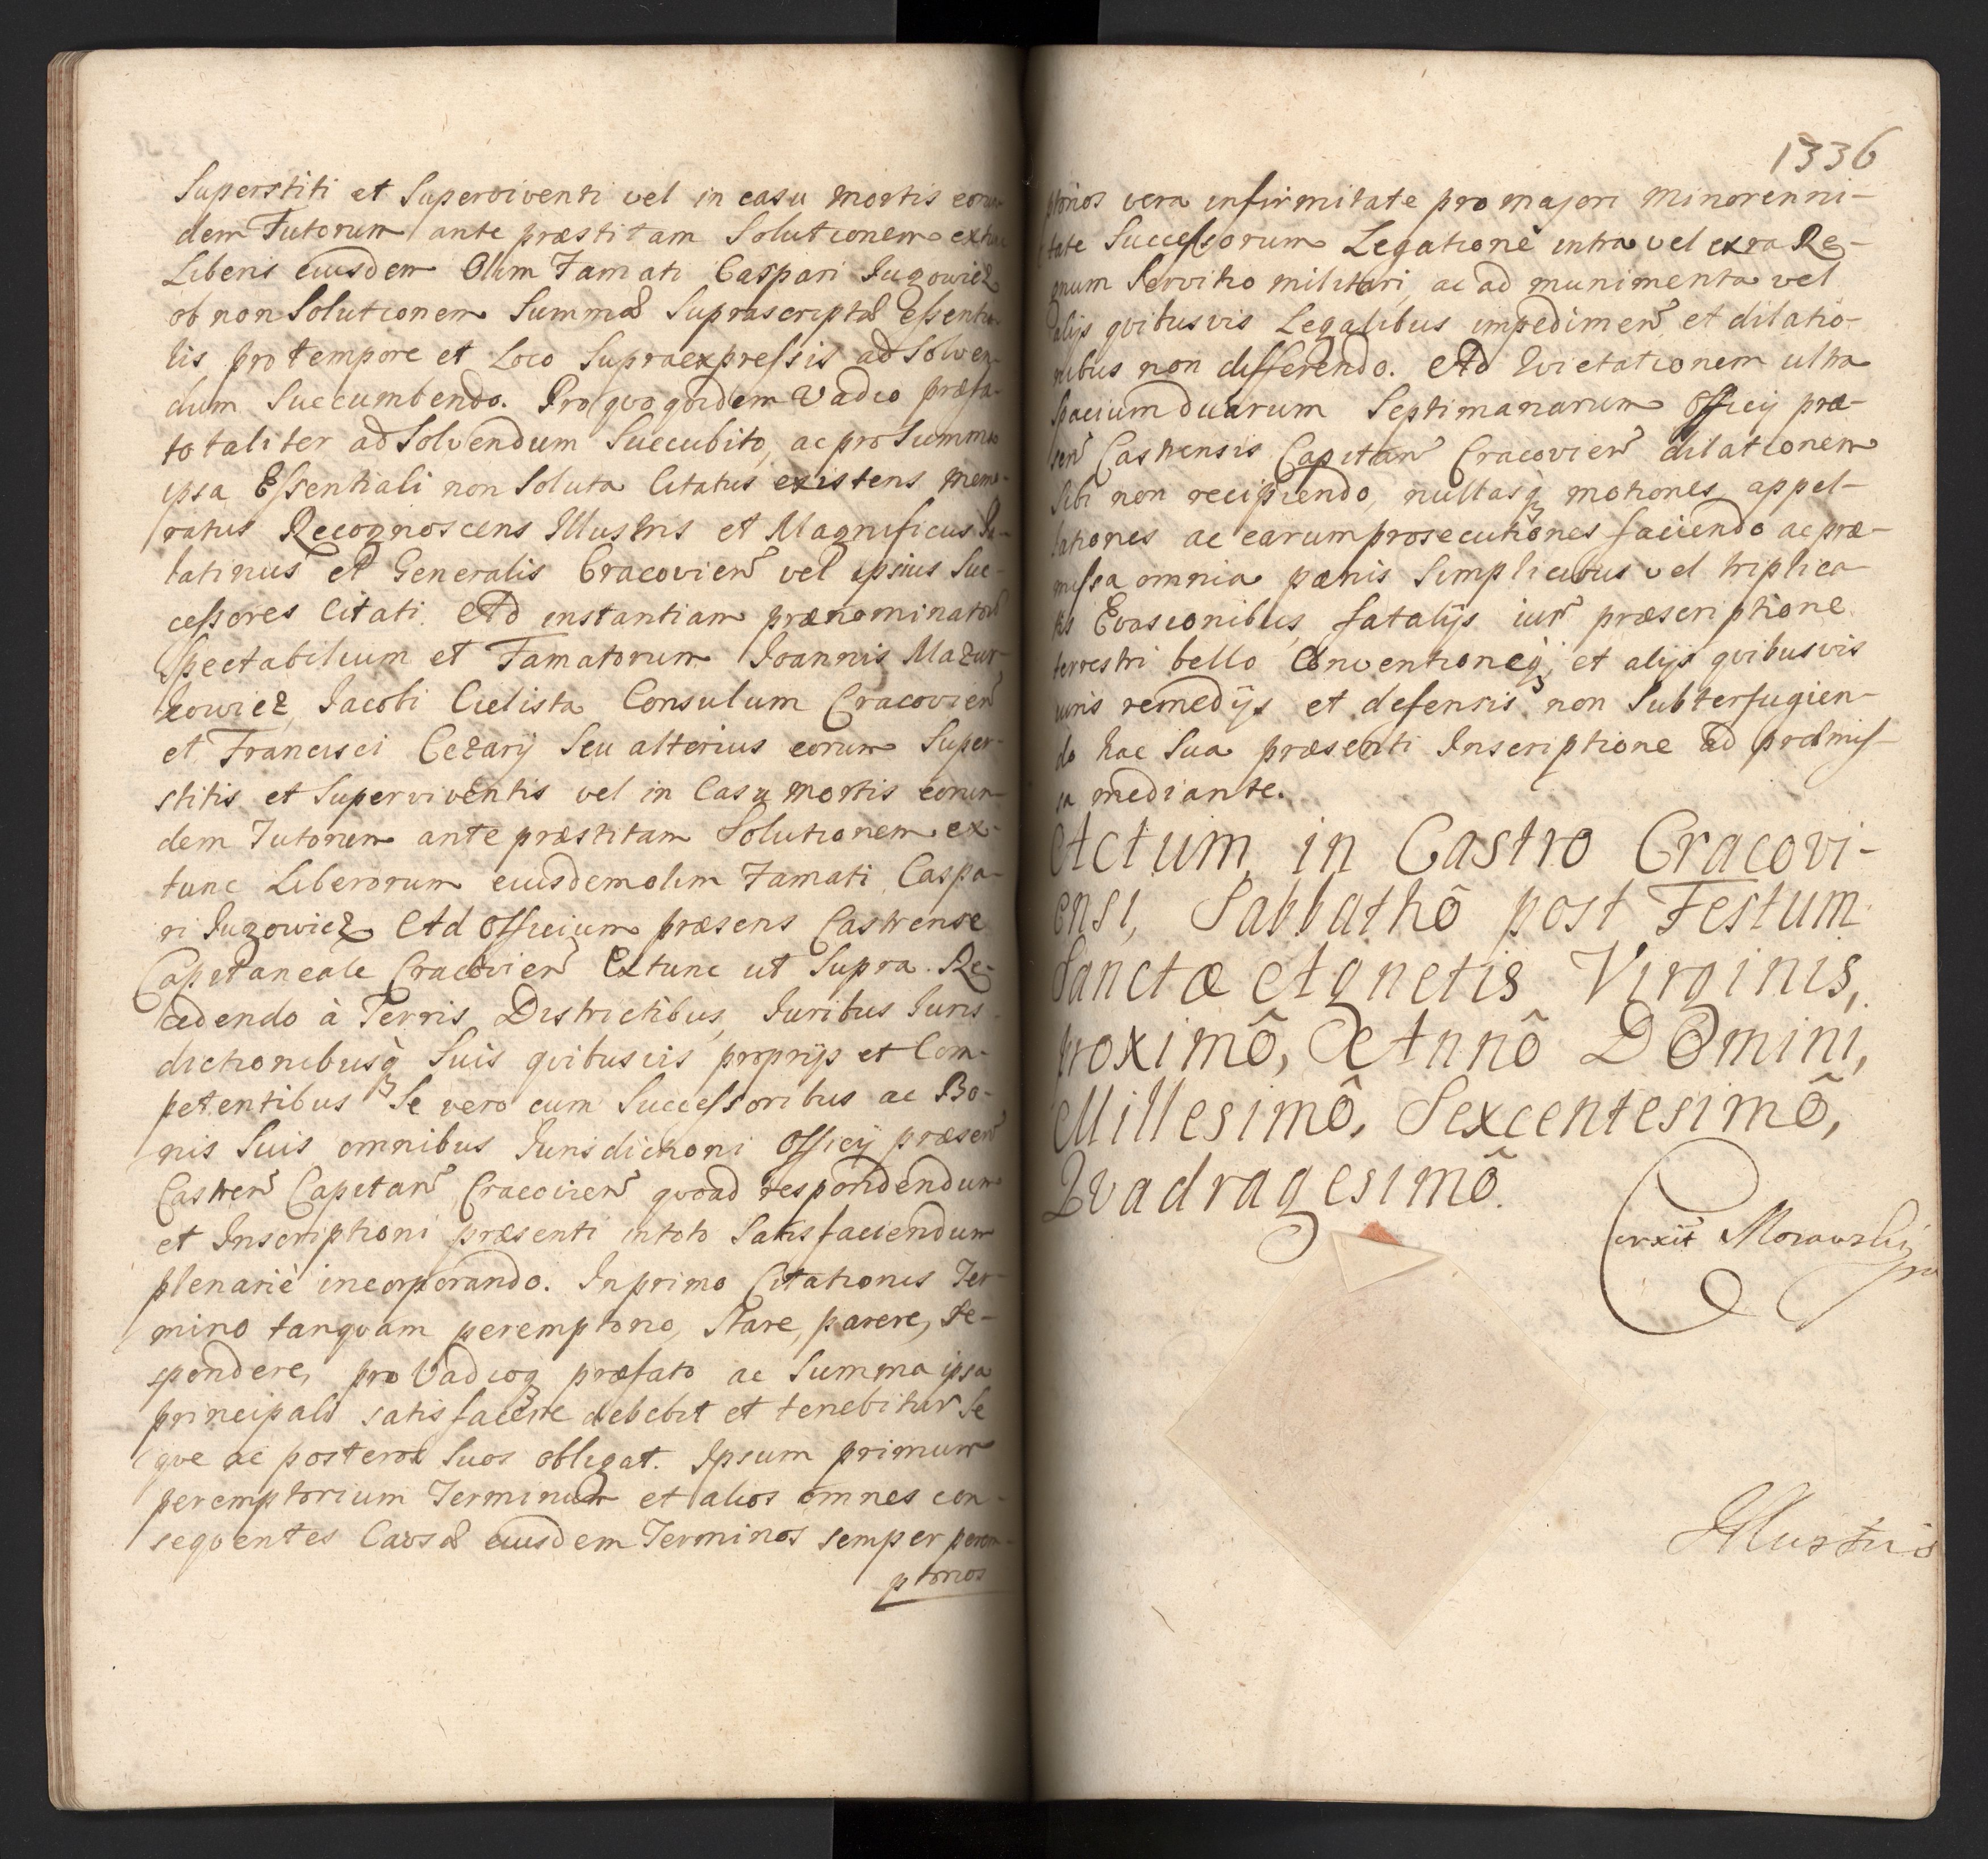 Superstiti et Superviventi vel in casu mortis eorun
dem Tutorum ante præstitam Solutionem extunc
Liberis eiusdem Olim Famati Caspari Iugowicz
ob non Solutionem Summæ Suprascriptæ Essentia
lis pro tempore et Loco Supraexpressis ad Solven
dum Succumbendo. Pro quo qvidem Vadio præfa-
to taliter ad Solvendum Succubito, ac pro Summa
ipsa Essentiali non Soluta Citatus existens memo-
ratus Recognoscens Illustris et Magnificus Pa-
latinus et Generalis Cracovien vel ipsius Suc-
cessores Citati. Ad instantiam prænominatorū
Spectabilium et Famatorum Ioannis Mazur-
kowicz, Iacobi Cielista Consulum Cracovien
et Francisci Cezarÿ Seu alterius eorum Super-
stitis et Superviventis vel in Casu mortis eorun-
dem Tutorum ante præstitam Solutionem ex-
tunc Liberorum eiusdem olim Famati Caspa-
ri Iugowicz Ad Officium præsens Castrense
Capitaneale Cracovien Extunc ut Supra. Re-
cedendo à Terris, Districtibus, Iuribus Juris
dictionibusq Suis qvibusvis proprijs et Com-
petentibus Se vero cum Successoribus ac Bo-
nis Suis omnibus Iurisdictioni Officÿ præsen
Castren Capitan Cracovien qvoad respondendum
et Inscriptioni præsenti intoto Satisfaciendum
plenariè incorporando. In primo Citationis Ter
mino tanqvam peremptorio, Stare, parere, re-
spondere, pro Vadioq præfato ac Summa ipsa
principali satisfacere debebit et tenebitur Se
qve ac posteros Suos obligat. Ipsum primum
peremptorium Terminum et alios omnes con-
seqventes Causæ eiusdem Terminos semper perem-
ptorios
1336
ptorios vera infirmitate pro majori minorenni-
tate Successorum Legationè intra vel exra Re-
gnum Servitio militari, ac ad munimenta vel
alijs qvibusvis Legalibus impedimen et dilatio-
nibus non differendo. Ad Evictationem ultra
Spacium duarum Septimanarum Officÿ præ-
sen Castrensis Capitan Cracovien dilationem
Sibi non recipiendo, nullasq motiones, appel-
lationes ac earum prosecutiones faciendo ac præ-
missa omnia pænis Simplicibus vel triplica-
tis Evasionibus, fatalijs iur præscriptione
terrestri bello Conventioneq, et alijs qvibusvis
iuris remedijs et defensis non Subterfugien-
do hac Sua præsenti Inscriptione ad præmis-
sa mediante.
Actum in Castro Cracovi-
ensi, Sabbathô post Festum
Sanctæ Agnetis Virginis,
proximô, Annô Domini,
Millesimô, Sexcentesimô,
Qvadragesimô.
Corxit Morawskj
Illustris